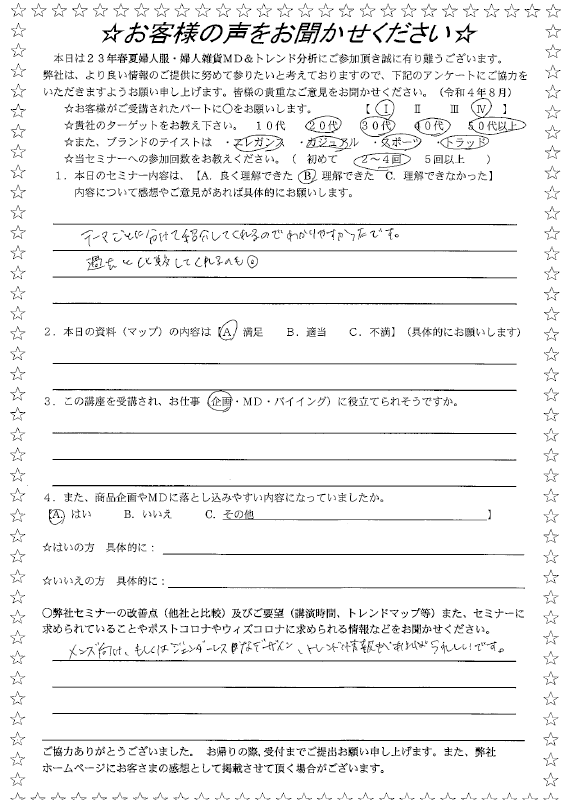 ☆お客様の声をお聞かせください☆
本日は23年春夏婦人服・婦人雑貨MD＆トレンド分析にご参加頂き誠に有り難うございます。
弊社は、より良い情報のご提供に努めて参りたいと考えておりますので、下記のアンケートにご協力を
いただきますようお願い申し上げます。皆様の貴重なご意見をお聞かせください。（令和4年8月）
☆お客様がご受講されたパートに○をお願いします。　【 Ⅰ　Ⅱ　Ⅲ　Ⅳ 】
☆貴社のターゲットをお教え下さい。 10代　20代　30代　40代　50代以上
☆また、ブランドのテイストは ・エレガンス ・カジュアル ・スポーツ ・トラッド
☆当セミナーへの参加回数をお教えください。（ 初めて　2～4回　5回以上 ）
1．本日のセミナー内容は、【A. 良く理解できた B. 理解できた C. 理解できなかった】
内容について感想やご意見があれば具体的にお願いします。
テーマごとに分けて紹介してくれるのでわかりやすかったです。
過去と比較してくれるのも◎
2．本日の資料（マップ）の内容は【A. 満足　B. 適当　C. 不満】（具体的にお願いします）
3．この講座を受講され、お仕事（企画・MD・バイイング）に役立てられそうですか。
4．また、商品企画やMDに落とし込みやすい内容になっていましたか。
【A. はい　B. いいえ　C. その他　】
☆はいの方　具体的に：
☆いいえの方　具体的に：
○弊社セミナーの改善点（他社と比較）及びご要望（講演時間、トレンドマップ等）また、セミナーに
求められていることやポストコロナやウィズコロナに求められる情報などをお聞かせください。
メンズ向け、もしくはジェンダーレス的なデザイン、トレンド情報があればうれしいです。
ご協力ありがとうございました。　お帰りの際、受付までご提出お願い申し上げます。また、弊社
ホームページにお客さまの感想として掲載させて頂く場合がございます。